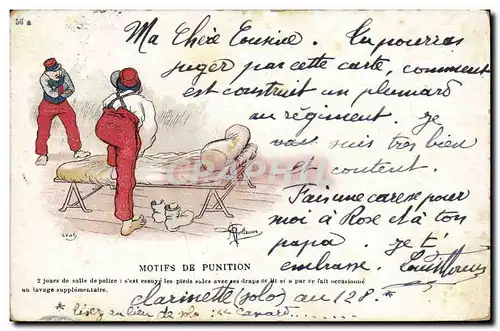 56 a
Ma Chère Cousine. Tu pourras
juger par cette carte, comment
est construit un plumard
au régiment. Je
vais suis très bien
et content.
Fais une caresse pour
moi à Rose et à ton
papa. Je t'
embrasse. Louis
CPARAMA
MOTIFS DE PUNITION
2 jours de salle de police : s'est essuyé les pieds sales avec ses draps de lit et a par ce fait occasionné
un lavage supplémentaire.
clarinette (solo) au 128.*
* lisez au lieu de solo : Canard....